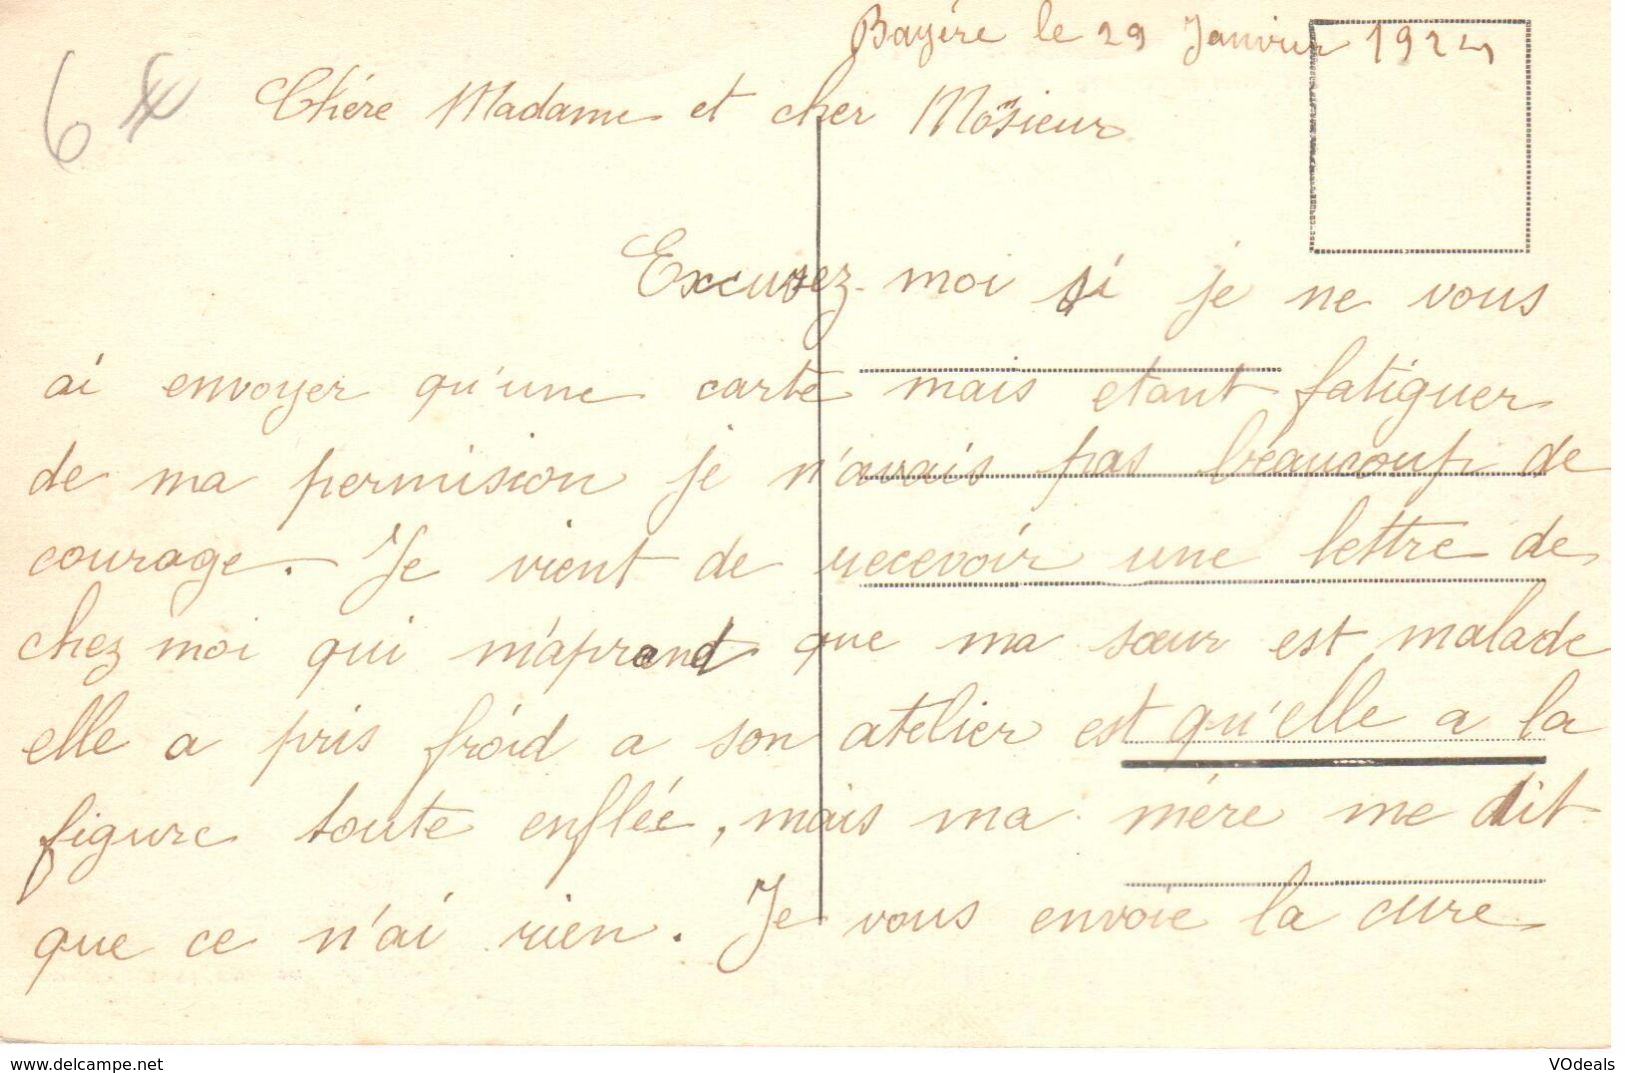 Bayère le 29 Janvier 1924
6
Chère Madame et cher Mosieur
Excusez-moi si je ne vous
ai envoyer qu'une carte mais etant fatiguer
de ma permision je n'avais pas beaucoup de
courage. Je vient de recevoir une lettre de
chez moi qui m'aprend que ma sœur est malade
elle a pris froid a son atelier est qu'elle a la
figure toute enflée, mais ma mère me dit
que ce n'ai rien. Je vous envoie la cure
www.delcampe.net
VOdeals